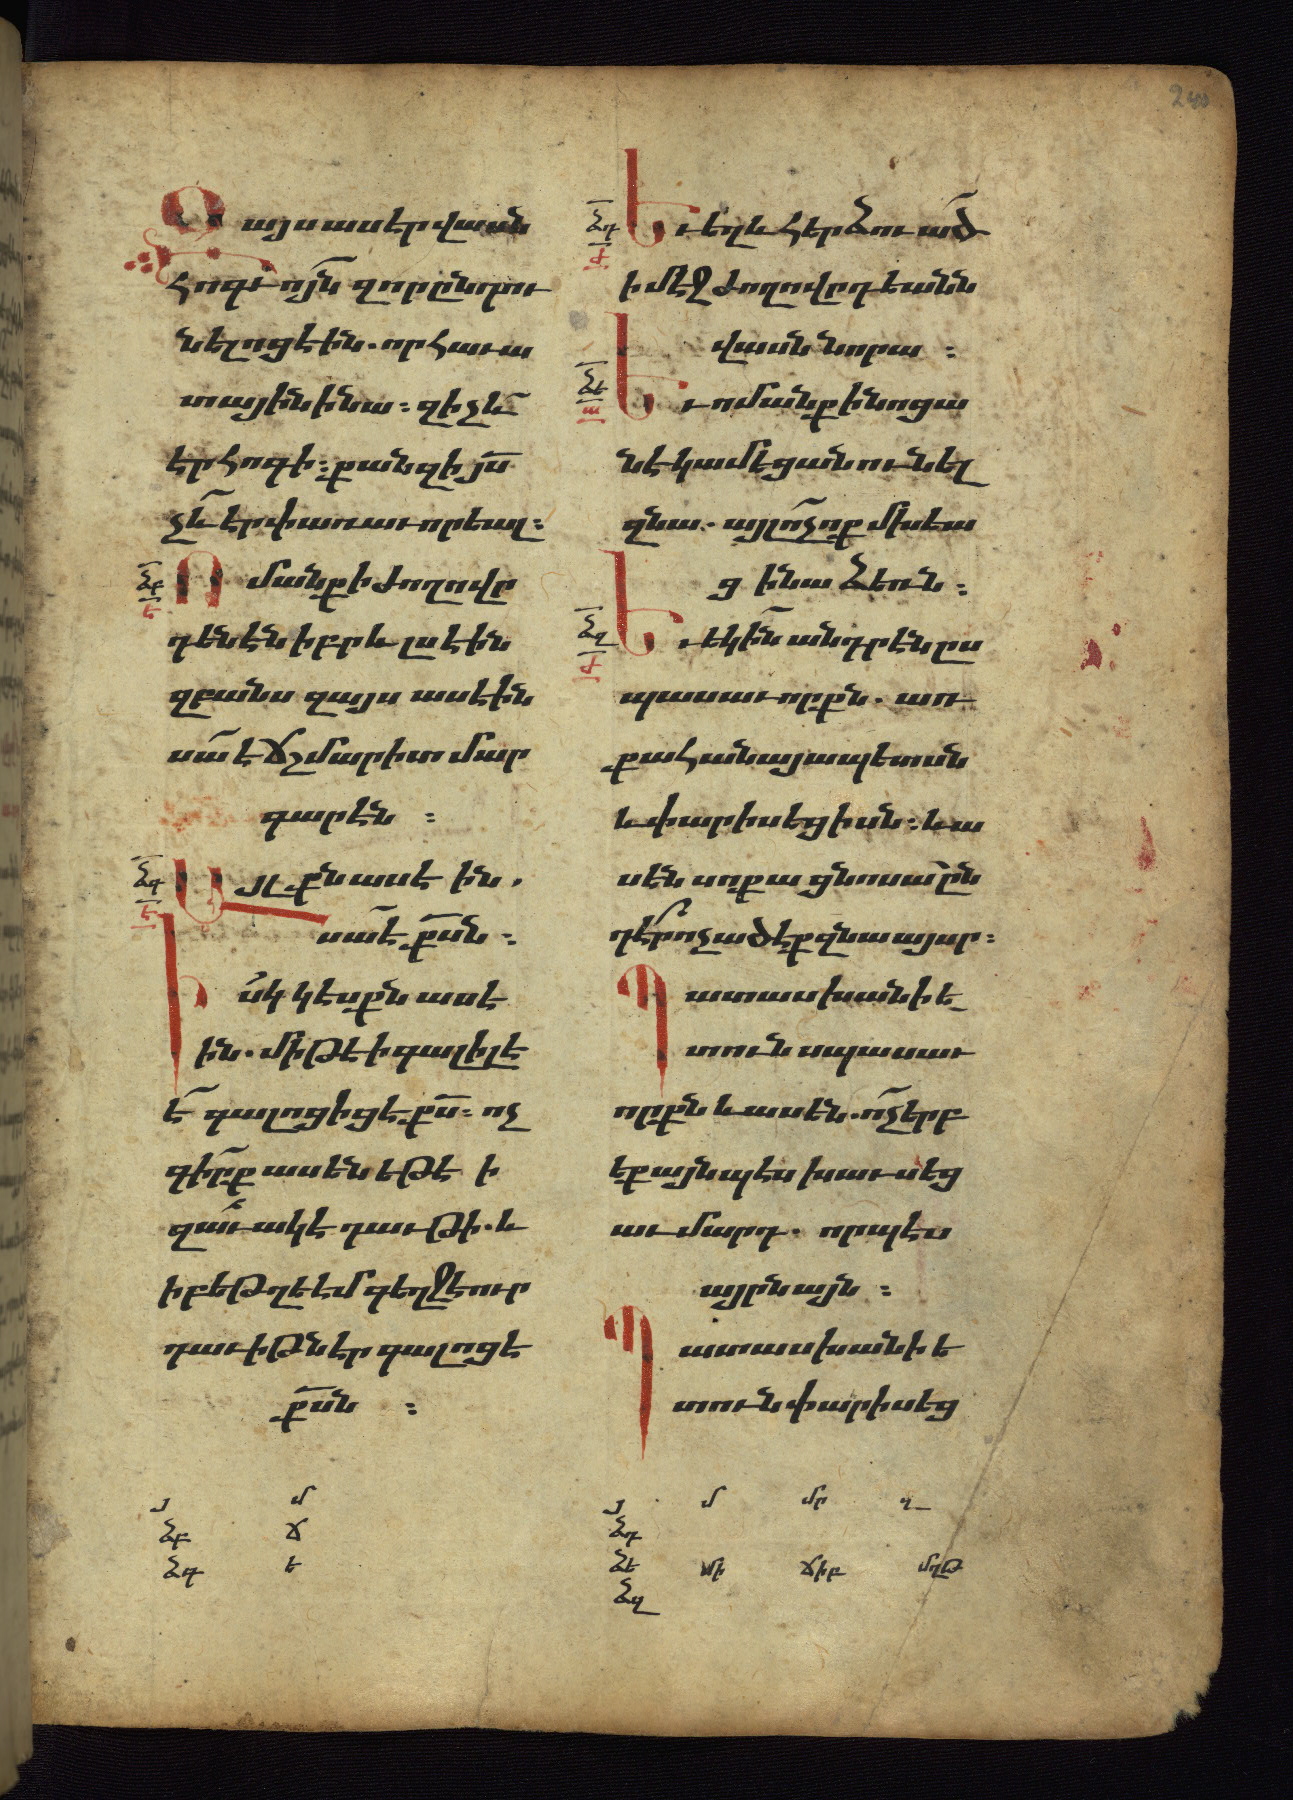 240
Զայս ասէր վասն
հոգւոյն զոր ընդու
նելոց էին. որ հաւա
տային ի նա։ զի չև
էր հոգի։ քանզի յս
չև էր փառաւորեալ։
ձբ ե
Ոմանք ի ժողովը
դենէն իբրև լսէին
զբանս զայս ասէին
սա է ճշմարիտ մար
գարէն։
ձգ ե
Այլքն ասէ ին.
սա է քսն։
Իսկ կէսքն ասէ
ին. միթէ ի գալիլե
է գալոց իցէ քս։ ոչ
գիրք ասեն եթէ ի
զաւակէ դաւթի. և
ի բեթղեէմ գեղջէ ուր
դաւիթն էր գալոց է
քսն։
յ մ
ձբ ճ
ձգ ե
ձդ ժ
Եւ եղև հերձուած
ի մէջ ժողովըդեանն
վասն նորա։
ձե ա
Եւ ոմանք ի նոցա
նէ կամէցան ունել
զնա. այլ ոչ ոք մխեա
ց ի նա ձեռն։
ձզ ժ
Եւ եկին անդրէն ըս
պասաւորքն. առ
քահանայապետսն
և փարիսեցիսն։ և ա
սեն սոքա ցնոսա ըն
դէր ոչ ածէք զնա այսր։
Պատասխանի ե
տուն սպասաւ
որքն և ասեն. ոչ երբ
եք այնպէս խաւսեց
աւ մարդ. որպէս
այրն այն։
Պատասխանի ե
տուն փարիսեց
յ մ մր
ձդ
ձե մի ճիբ մղթ
ձզ